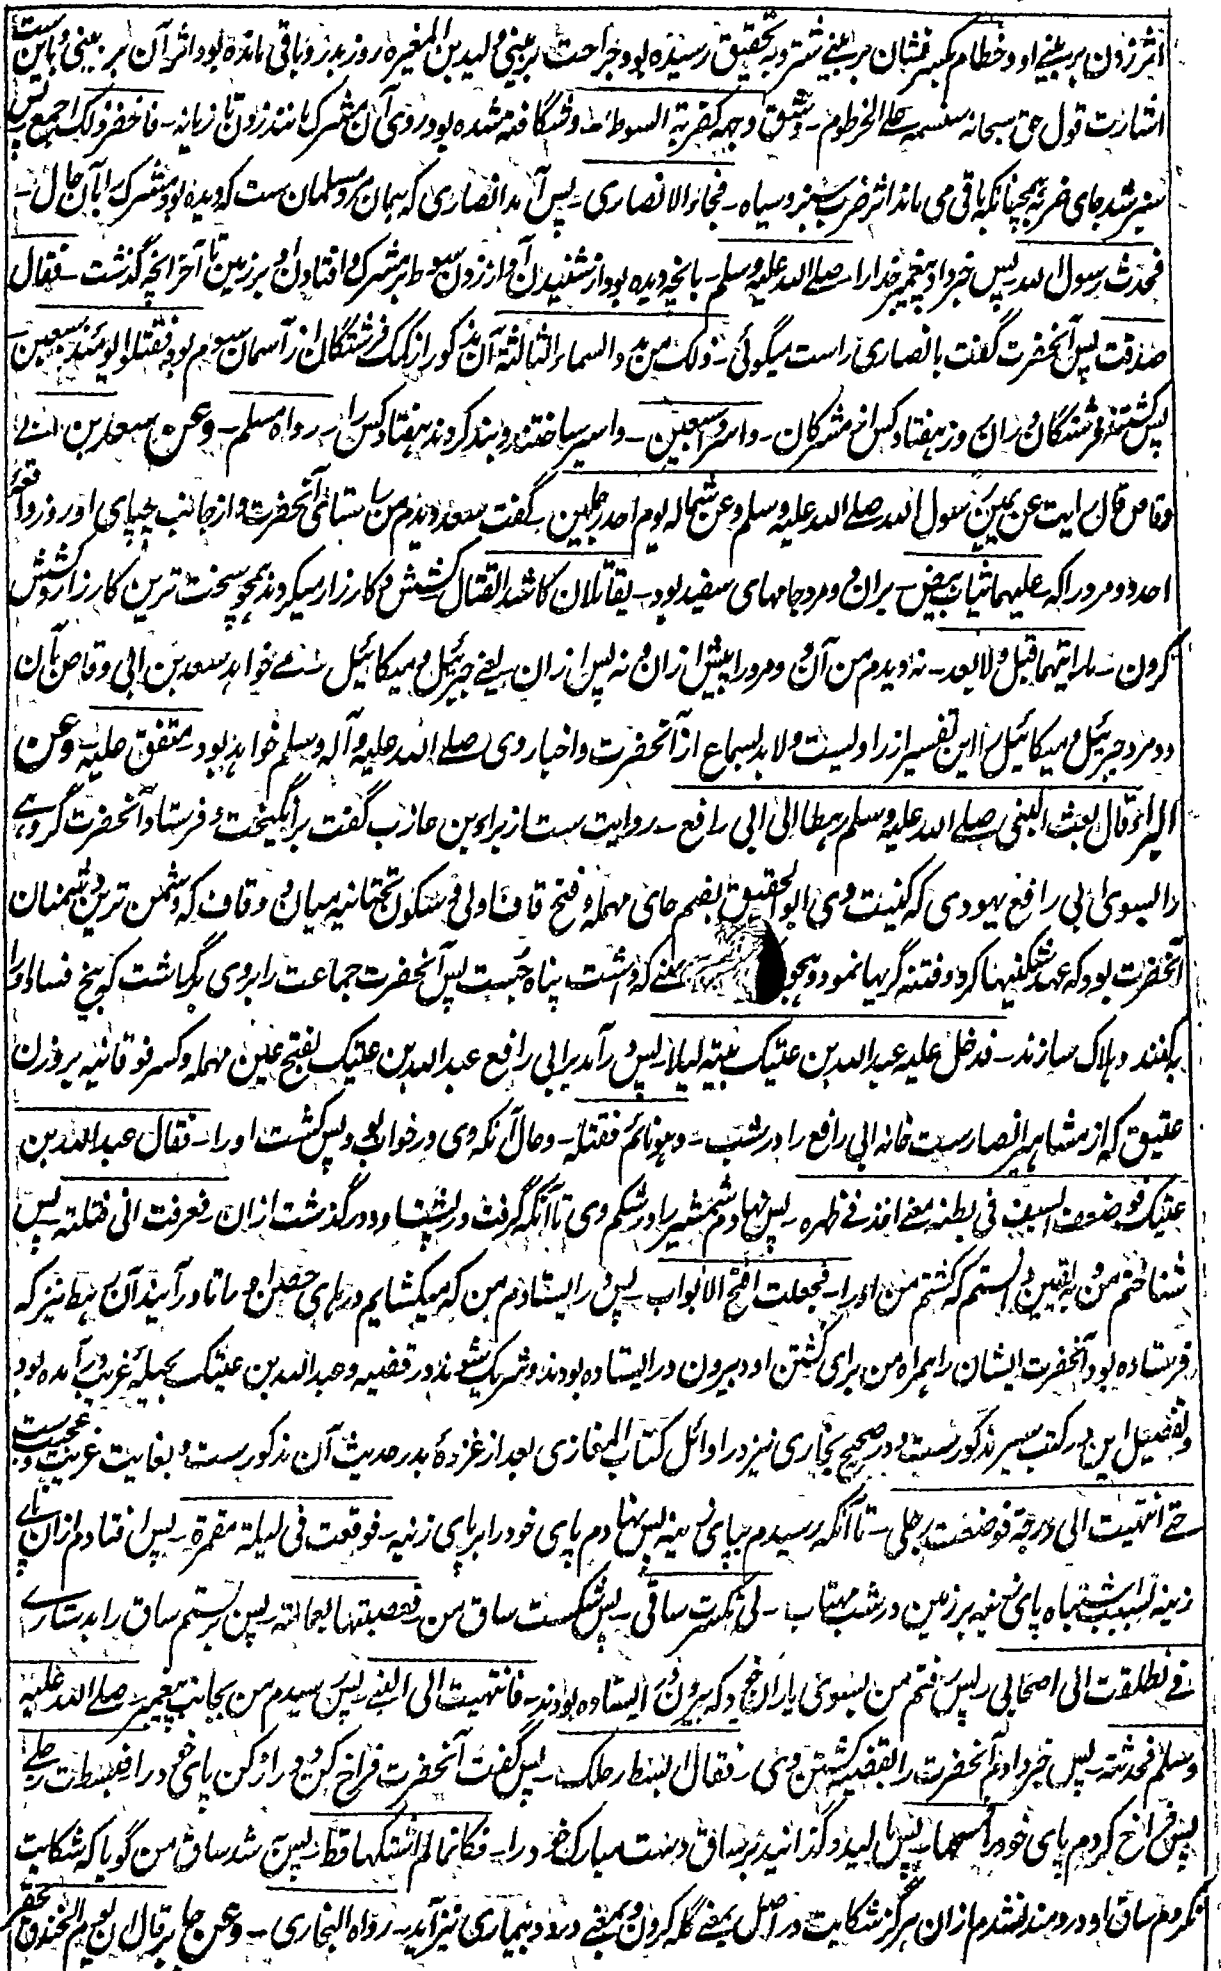 اثر زدن بر بینے او و خطام بکسر نشان بر بینے شتر و بہ تحقیق رسیدہ بود جراحت بر بینی ولید بن المغیرہ روز بدر و باقی ماندہ بود اثر آن بر بینی و باین ست
اشارت قول حق سبحانہ سنسمہ علی الخرطوم ـ و شق وجہہ کضربۃ السوط ـ و شگافتہ شدہ بود روی آن مشرک مانند زدن تازیانہ ـ فاخضر ذلک اجمع پس
سبز شد جای ضربہ ہمچنانکہ باقی می ماند اثر ضرب سبز و سیاہ ـ فجاء الانصاری ـ پس آمد انصاری کہ ہمان مرد مسلمان ست کہ دیدہ بود مشرک را بآن حال ـ
فحدث رسول اللہ پس خبر داد پیغمبر خدا را صلے اللہ علیہ و سلم ـ بانچہ دیدہ بود از شنیدن آواز زدن سوط بر مشرک و افتادن او بر زمین تا آخر انچہ گذشت ـ فقال
صدقت پس آنحضرت گفت بانصاری راست میگوئی ـ ذلک من مدد السماء الثالثۃ آن مذکور از کمک فرشتگان از آسمان سوم بود فقتلوا یومئذ سبعین
پس کشتند فرشتگان دران روز ہفتاد کس از مشرکان ـ و اسروا سبعین ـ و اسیر ساختند و بند کردند ہفتاد کس را ـ رواہ مسلم ـ و عن سعد بن ابے
وقاص قال رایت عن یمین رسول اللہ صلے اللہ علیہ وسلم و عن شمالہ یوم احد رجلین ـ گفت سعد دیدم من راستای آنحضرت و از جانب چپای او روز واقعۂ
احد دو مرد را کہ ـ علیہما ثیاب بیض ـ بران دو مرد جامہای سفید بود ـ یقاتلان کاشد القتال کشش و کارزار میکردند ہمچو سخت ترین کارزار و کشش
کردن ـ ما رایتہما قبل و لا بعد ـ نہ دیدم من آن دو مرد را پیش ازان و نہ پس ازان ـ یعنے جبرئیل و میکائیل ـ مے خواہد سعد بن ابی وقاص بآن
دو مرد جبرئیل و میکائیل را این تفسیر از راویست و لابد بسماع از آنحضرت و اخبار وی صلے اللہ علیہ و آلہ وسلم خواہد بود ـ متفق علیہ و عن
البراء قال بعث النبی صلے اللہ علیہ وسلم رہطا الی ابی رافع ـ روایت ست از براء بن عازب گفت برانگیخت و فرستاد آنحضرت گروہے
را بسوی ابی رافع یہودی کہ کنیت وی ابو الحقیق بضم حای مہملہ و فتح قاف اولی و سکون تحتانیہ میان دو قاف کہ دشمن ترین دشمنان
آنحضرت بود کہ عہد شکنیہا کرد و فتنہ گریہا نمود و ہجو کہ داشت پناہ جست پس آنحضرت جماعت را بروی برگماشت کہ بیخ فساد او را
بکنند و ہلاک سازند ـ فدخل علیہ عبد اللہ بن عتیک بیتہ لیلا ـ پس در آمد بر ابی رافع عبد اللہ بن عتیک بفتح عین مہملہ و کسر فوقانیہ بروزن
عتیق کہ از مشاہیر انصارست خانہ ابی رافع را در شب ـ و ہو نائم فقتلہ ـ و حال آنکہ وی در خواب بود پس کشت او را ـ فقال عبد اللہ بن
عتیک فوضعت السیف فی بطنہ حتی اخذ فی ظہرہ ـ پس نہادم شمشیر را در شکم وی تا آنکہ گرفت در پشت او و در گذشت ازان ـ فعرفت انی قتلتہ پس
شناختم من و یقین دانستم کہ کشتم من او را ـ فجعلت افتح الابواب ـ پس در ایستادم من کہ میکشایم درہای حصن او را تا در آیند آن رہط نیز کہ
فرستادہ بود آنحضرت ایشان را ہمراہ من برای کشتن او و بیرون در ایستادہ بودند و شریک شوند در قضیہ و عبد اللہ بن عتیک بحیلۂ غریب در آمدہ بود
و تفصیل این در کتب سیر مذکورست و در صحیح بخاری نیز در اوائل کتاب المغازی بعد از غزوۂ بدر حدیث آن مذکورست و بغایت غریب و عجیب ست
حتے انتہیت الی درجۃ فوضعت رجلی ـ تا آنکہ رسیدم بپای زینہ پس نہادم پای خود را بر پای زینہ ـ فوقعت فی لیلۃ مقمرۃ ـ پس افتادم ازان پای
زینہ بسبب اشتباہ پای زینہ بر زمین در شب مہتاب ـ فانکسرت ساقی ـ پس شکست ساق من ـ فعصبتہا بعمامۃ ـ پس بستم ساق را بدستارے
فانطلقت الی اصحابی ـ پس رفتم من بسوی یاران خود کہ بیرون در ایستادہ بودند ـ فانتہیت الی النبے ـ پس رسیدم من بجانب پیغمبر ـ صلے اللہ علیہ
و سلم فحدثتہ ـ پس خبر دادم آنحضرت را بقضیہ کشتن وی ـ فقال ابسط رجلک ـ پس گفت آنحضرت فراخ کن و دراز کن پای خود را فبسطت رجلے
پس فراخ کردم پای خود را فمسحہا ـ پس بمالید و گذرانید بر ساق دست مبارک خود را ـ فکانما لم اشتکہا قط ـ پس آن شد ساق من گویا کہ شکایت
نکردم ساق او و دردمند نشدم ازان ہرگز شکایت در اصل بمعنے گلہ کردن و بمعنے درد و بیماری نیز آید ـ رواہ البخاری ـ و عن جابر قال انا یوم الخندق نحفر